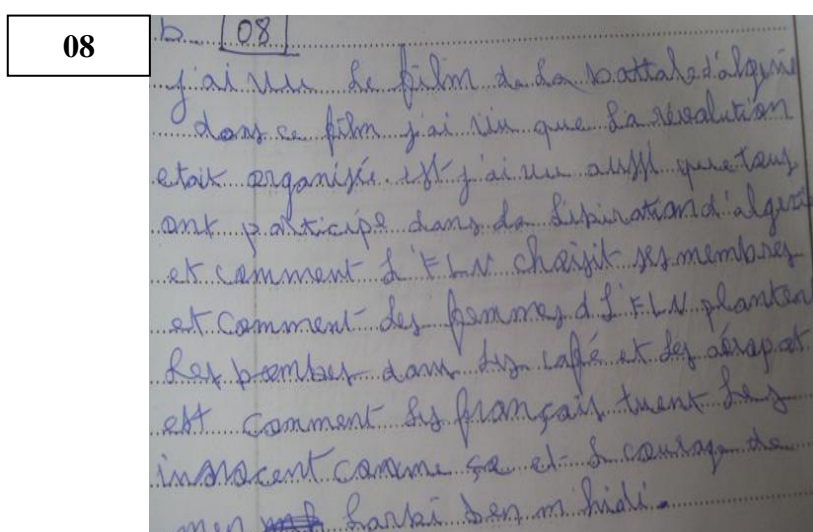 08
b. 08
j'ai vu le film de la battale d'algerie
dans ce film j'ai vu que la révolution
etait organisée. est j'ai vu aussi que tous
ont participé dans la libiration d'algerie
et comment l'FLN choisit ses membres
et comment des femmes d l'FLN planten
les bombes dans les café et les aéropot
est comment les français tuent les
innocent comme ça et l courage de
men larbi ben m'hidi.